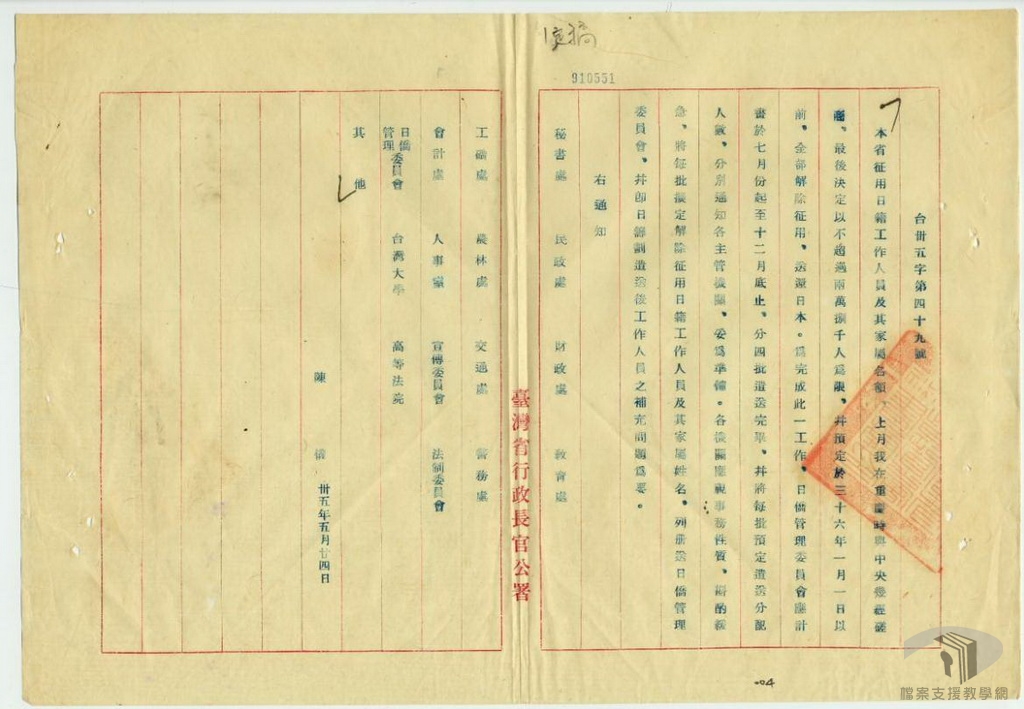 定稿
910551
台卅五字第四十九號
本省征用日籍工作人員及其家屬名額、上月我在重慶時與中央幾經磋
商、最後決定以不超過兩萬捌千人為限、幷預定於三十六年一月一日以
前、全部解除征用、送還日本。為完成此一工作、日僑管理委員會應計
畫於七月份起至十二月底止、分四批遣送完畢、幷將每批預定遣送分配
人數、分別通知各主管機關、妥為準備。各機關應視事務性質、斟酌緩
急、將每批擬定解除征用日籍工作人員及其家屬姓名、列册送日僑管理
委員會、幷即日籌劃遣送後工作人員之補充問題為要。
右通知
秘書處 民政處 財政處 教育處
臺灣省行政長官公署
工礦處 農林處 交通處 警務處
會計處 人事室 宣傳委員會 法制委員會
日僑管理委員會 台灣大學 高等法院
其他
陳儀
卅五年五月廿四日
004
檔案支援教學網